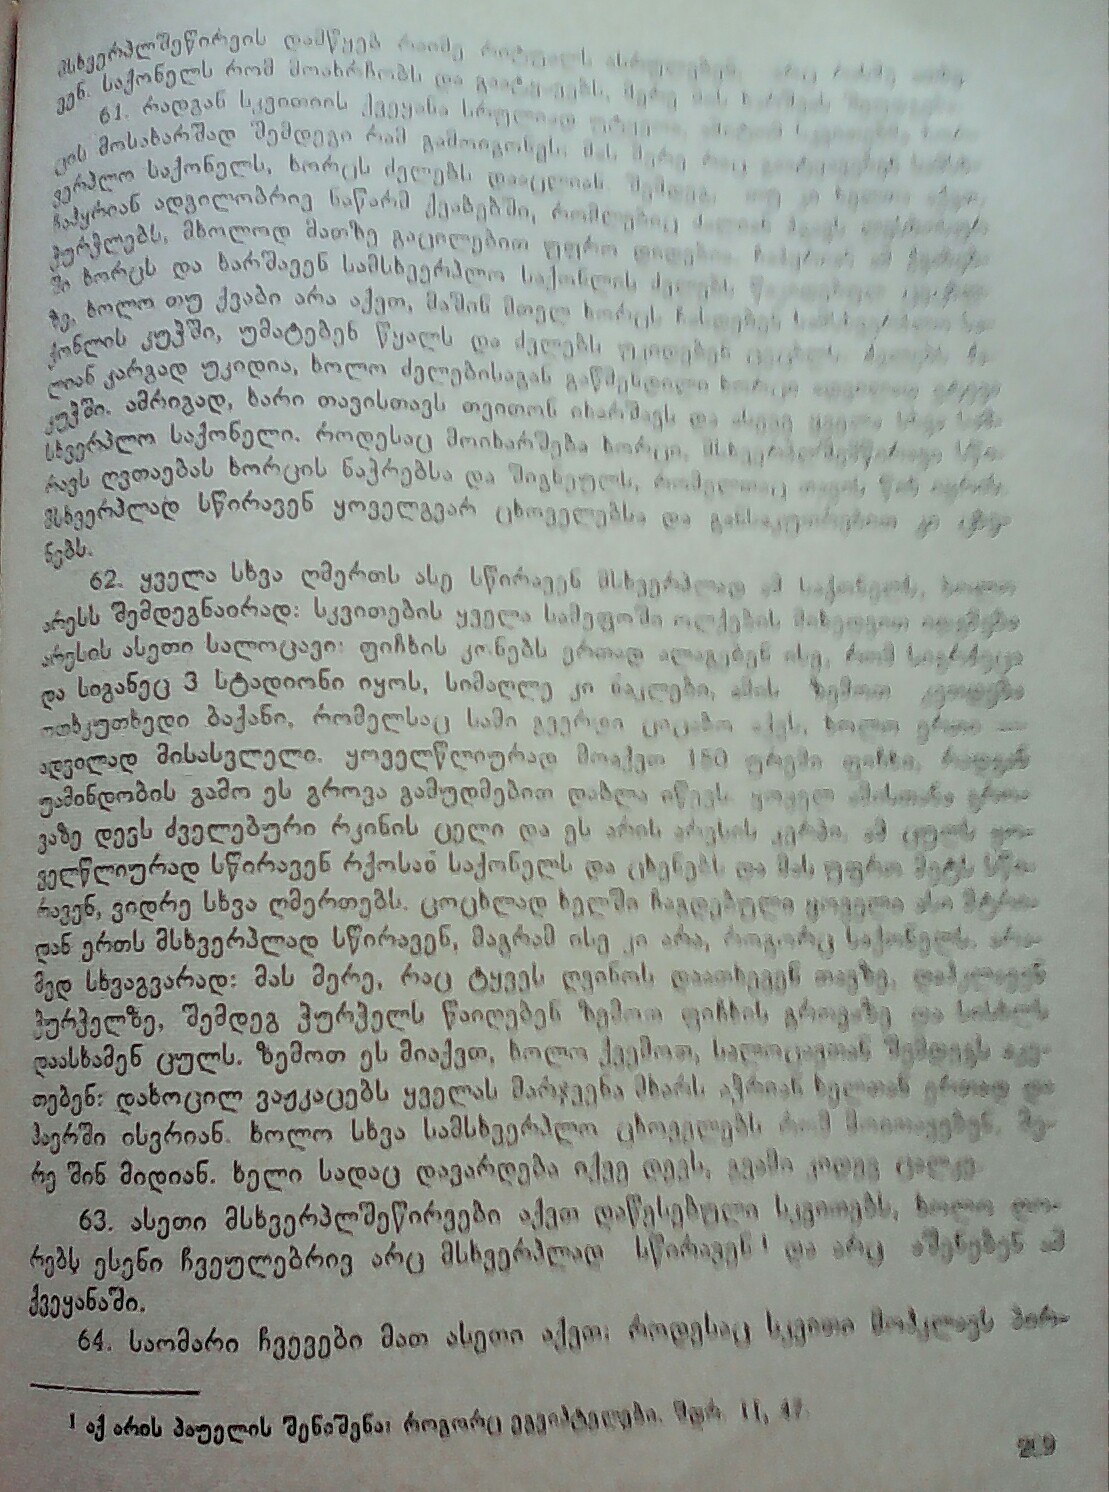 მსხვერპლშეწირვის დამწყებ რაიმე რიტუალს ასრულებენ,
ვენ. საქონელს რომ მოახრჩობს და გაატყავებს, მერე მის ხარშვას
61. რადგან სკვითიის ქვეყანა სრულიად უტყეოა, ამიტომ
ცის მოსახარშად შემდეგი რამ გამოიგონეს: მას მერე რაც
ვერპლო საქონელს, ხორცს ძელებს დააცლიან. შემდეგ, თუ კი ხელთ აქვთ,
ჩაჰყრიან ადგილობრივ ნაწარმ ქვაბებში, რომლებიც ძალიან ჰგავს
ჭურჭლებს, მხოლოდ მათზე გაცილებით უფრო დიდებია.
ში ხორცს და ხარშავენ სამსხვერპლო საქონლის ძელებს
ზე, ხოლო თუ ქვაბი არა აქვთ, მაშინ მთელ ხორცს ჩასდებენ სამსხვერპლო სა-
ქონლის კუჭში, უმატებენ წყალს და ძელებს უკიდებენ ცეცხლს. ძელებს ძა-
ლიან კარგად უკიდია, ხოლო ძელებისაგან გაწმენდილი ხორცი ადვილად
კუჭში. ამრიგად, ხარი თავისთავს თვითონ იხარშავს და ასევე ყველა სხვა სამ-
სხვერპლო საქონელი. როდესაც მოიხარშება ხორცი, მსხვერპლშემწირავი სწი-
რავს ღვთაებას ხორცის ნაჭრებსა და შიგნეულს, რომელთაც თავის წინ ისვრის.
მსხვერპლად სწირავენ ყოველგვარ ცხოველებსა და განსაკუთრებით კი ცხე-
ნებს.
62. ყველა სხვა ღმერთს ასე სწირავენ მსხვერპლად ამ საქონელს, ხოლო
არესს შემდეგნაირად: სკვითების ყველა სამეფოში ოლქების მიხედვით
არესის ასეთი სალოცავი: ფიჩხის კონებს ერთად ალაგებენ ისე, რომ სიგრძეც
და სიგანეც 3 სტადიონი იყოს, სიმაღლე კი ნაკლები, ამის ზემოთ კეთდება
ოთხკუთხედი ბაქანი, რომელსაც სამი გვერდი ციცაბო აქვს, ხოლო ერთი —
ადვილად მისასვლელი. ყოველწლიურად მოაქვთ 150 ურემი ფიჩხი, რადგან
უამინდობის გამო ეს გროვა გამუდმებით დაბლა იწევს. ყოველ ამისთანა გრო-
ვაზე დევს ძველებური რკინის ცელი და ეს არის არესის კერპი. ამ ცულს ყო-
ველწლიურად სწირავენ რქოსან საქონელს და ცხენებს და მას უფრო მეტს სწი-
რავენ, ვიდრე სხვა ღმერთებს. ცოცხლად ხელში ჩაგდებული ყოველი ასი მტრი-
დან ერთს მსხვერპლად სწირავენ, მაგრამ ისე კი არა, როგორც საქონელს, არა-
მედ სხვაგვარად: მას მერე, რაც ტყვეს ღვინოს დაათხევენ თავზე, დაჰკლავენ
ჭურჭელზე, შემდეგ ჭურჭელს წაიღებენ ზემოთ ფიჩხის გროვაზე და სისხლს
დაასხამენ ცულს. ზემოთ ეს მიაქვთ, ხოლო ქვემოთ, სალოცავთან შემდეგს აკე-
თებენ: დახოცილ ვაჟკაცებს ყველას მარჯვენა მხარს აჭრიან ხელთან ერთად და
ჰაერში ისვრიან. ხოლო სხვა სამსხვერპლო ცხოველებს რომ მოითავებენ, მე-
რე შინ მიდიან. ხელი სადაც დავარდება იქვე დევს, გვამი კიდევ ცალკე
63. ასეთი მსხვერპლშეწირვები აქვთ დაწესებული სკვითებს, ხოლო ღო-
რებს ესენი ჩვეულებრივ არც მსხვერპლად სწირავენ¹ და არც აშენებენ ამ
ქვეყანაში.
64. საომარი ჩვევები მათ ასეთი აქვთ: როდესაც სკვითი მოჰკლავს პირ-
¹ აქ არის პაუელის შენიშვნა: როგორც ეგვიპტელები. შდრ. II, 47.
209